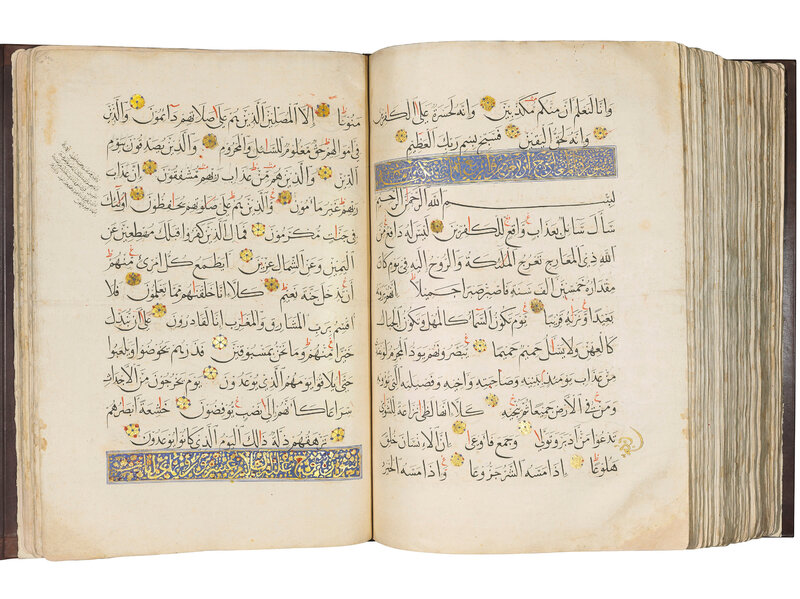 وانا لنعلم ان منكم مكذبين وانه لحسرة على الكافرين
وانه لحق اليقين فسبح باسم ربك العظيم
بسم الله الرحمن الرحيم
سأل سائل بعذاب واقع للكافرين ليس له دافع من
الله ذي المعارج تعرج الملئكة والروح اليه في يوم كان
مقداره خمسين الف سنة فاصبر صبرا جميلا انهم يرونه
بعيدا ونراه قريبا يوم تكون السماء كالمهل وتكون الجبال
كالعهن ولا يسئل حميم حميما يبصرونهم يود المجرم لو يفتدي
من عذاب يومئذ ببنيه وصاحبته واخيه وفصيلته التي تؤويه
ومن في الارض جميعا ثم ينجيه كلا انها لظى نزاعة للشوى
تدعوا من ادبر وتولى وجمع فاوعى ان الانسان خلق
هلوعا اذا مسه الشر جزوعا واذا مسه الخير
منوعا الا المصلين الذين هم على صلاتهم دائمون والذين
في اموالهم حق معلوم للسائل والمحروم والذين يصدقون بيوم
الدين والذين هم من عذاب ربهم مشفقون ان عذاب
ربهم غير مأمون والذين هم على صلوتهم يحافظون اولئك
في جنات مكرمون فمال الذين كفروا قبلك مهطعين عن
اليمين وعن الشمال عزين ايطمع كل امرئ منهم
ان يدخل جنة نعيم كلا انا خلقناهم مما يعلمون فلا
اقسم برب المشارق والمغارب انا لقادرون على ان نبدل
خيرا منهم وما نحن بمسبوقين فذرهم يخوضوا ويلعبوا
حتى يلاقوا يومهم الذي يوعدون يوم يخرجون من الاجداث
سراعا كانهم الى نصب يوفضون خاشعة ابصارهم
ترهقهم ذلة ذلك اليوم الذي كانوا يوعدون